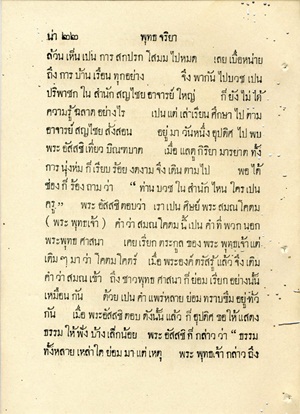 น่า ๒๒ พุทธ จริยา
ล้วน เห็น เปน การ สกปรก โสมม ไปหมด เลย เบื่อหน่าย
ถึง การ บ้าน เรือน ทุกอย่าง จึง พากัน ไปบวช เปน
ปริพาชก ใน สำนัก สญไชย อาจารย์ ใหญ่ ก็ ยัง ไม่ ได้
ความรู้ ฉลาด อย่างไร เปน แต่ เล่าเรียน ศึกษา ไป ตาม
อาจารย์ สญไชย สั่งสอน อยู่ มา วันหนึ่ง อุปติศ ไป พบ
พระ อัสสชิ เที่ยว บิณฑบาต เมื่อ แลดู กิริยา มารยาต ทั้ง
การ นุ่งห่ม ก็ เรียบ ร้อย งดงาม จึง เดิน ตามไป พอ ได้
ช่อง ก็ ร้อง ถาม ว่า “ ท่าน บวช ใน สำนัก ไหน ใคร เปน
ครู” พระ อัสสชิ ตอบว่า เรา เปน ศิษย์ พระ สมณโคดม
( พระ พุทธเจ้า ) คำ ว่า สมณ โคดม นี้ เปน คำ ที่ พวก นอก
พระพุทธ สาสนา เคย เรียก ตระกูล ของ พระ พุทธเจ้า แต่
เดิม ๆ มา ว่า โคดม โคตร์ เมื่อ พระองค์ ตรัสรู้ แล้ว จึง เติม
คำ ว่า สมณ เข้า ถึง ชาวพุทธ สาศนา ก็ ย่อม เรียก อย่างนั้น
เหมือน กัน ด้วย เปน คำ แพร่หลาย ย่อม ทราบซึม อยู่ ทั่ว
กัน เมื่อ พระอัสสชิ ตอบ ดังนั้น แล้ว ก็ อุปติศ ขอ ให้แสดง
ธรรม ให้ฟัง บ้าง เล็กน้อย พระ อัสสชิ ก็ กล่าว ว่า “ ธรรม
ทั้งหลาย เหล่าใด ย่อม มา แต่ เหตุ พระ พุทธเจ้า กล่าว ถึง